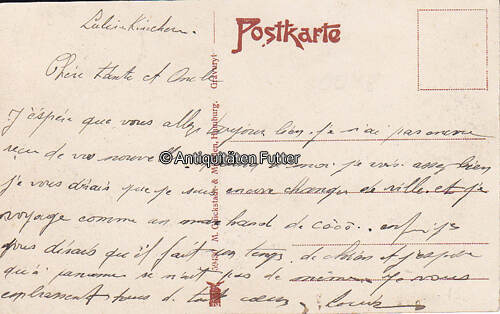 Postkarte
Chère tante et Oncle
J'éspére que vous allez toujour bien. je n'ai pas encore
reçu de vos nouvelle moi je vais assez bien
je vous dirais que je suis encore changer de ville. et je
voyage comme un marchand de côcô. enfin je
vous dirais qu'il fait un temps de chien et j'espere
qu'à se n'ait pas de même. Je vous
embrassent tous de tout cœur. Louis
M. Glückstadt & Münden, Hamburg.
© Antiquitäten Futter